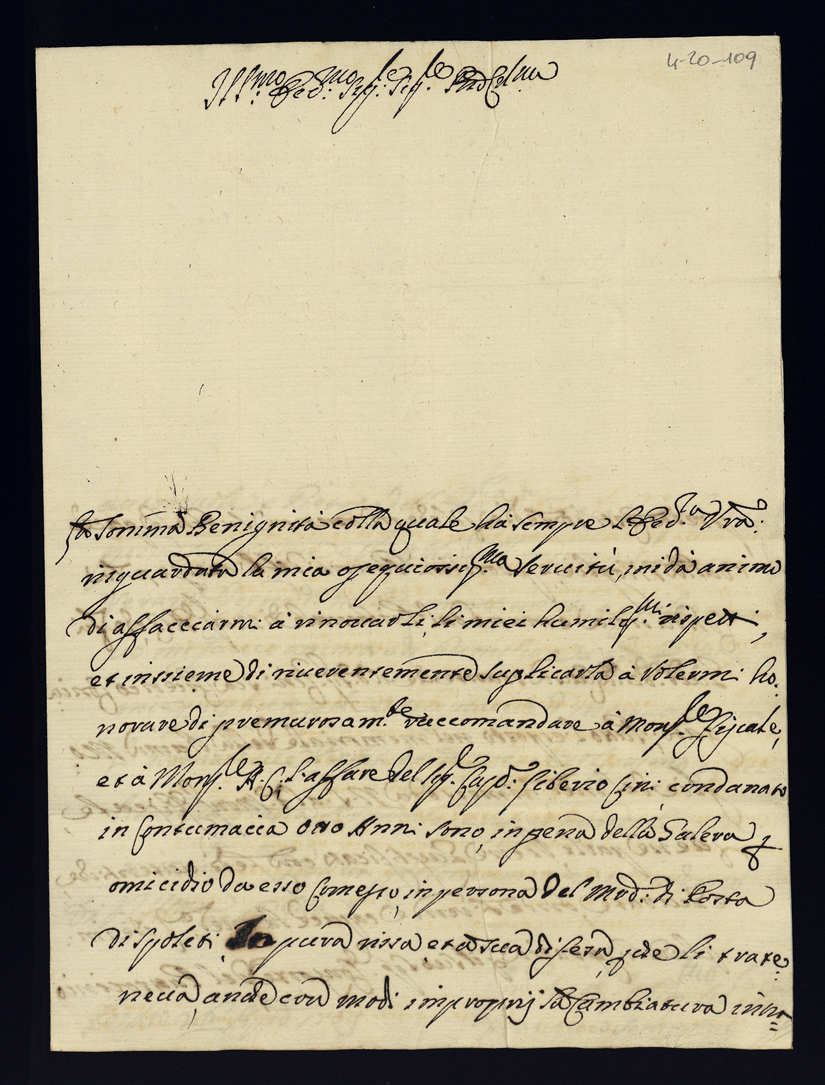 4-20-109
Ill.mo e Rev.mo Sig.re Sig.re Pad. Col.mo
La somma Benignità colla quale hà sempre l'Ecc.za Vra:
riguardata la mia ossequiosiss.ma Servitù, mi dà animo
di affacciarmi à rinouarli, li miei humiliss.mi rispetti,
et insieme di riuerentemente suplicarla à Volermi ho:
norare di premurosam.te raccomandare à Mons.re Fiscale,
et à Mons.re A: C: l'affare del Sig.re Cap.o Liberio Cini condanato
in Contumacia otto Anni sono, in pena della Galera p
omicidio da esso Comesso, in persona del Mrô: di Posta
di Spoleti In pura rissa, et à sua difesa, che li trate:
neua, anche con modi improprij la Cambiatura in